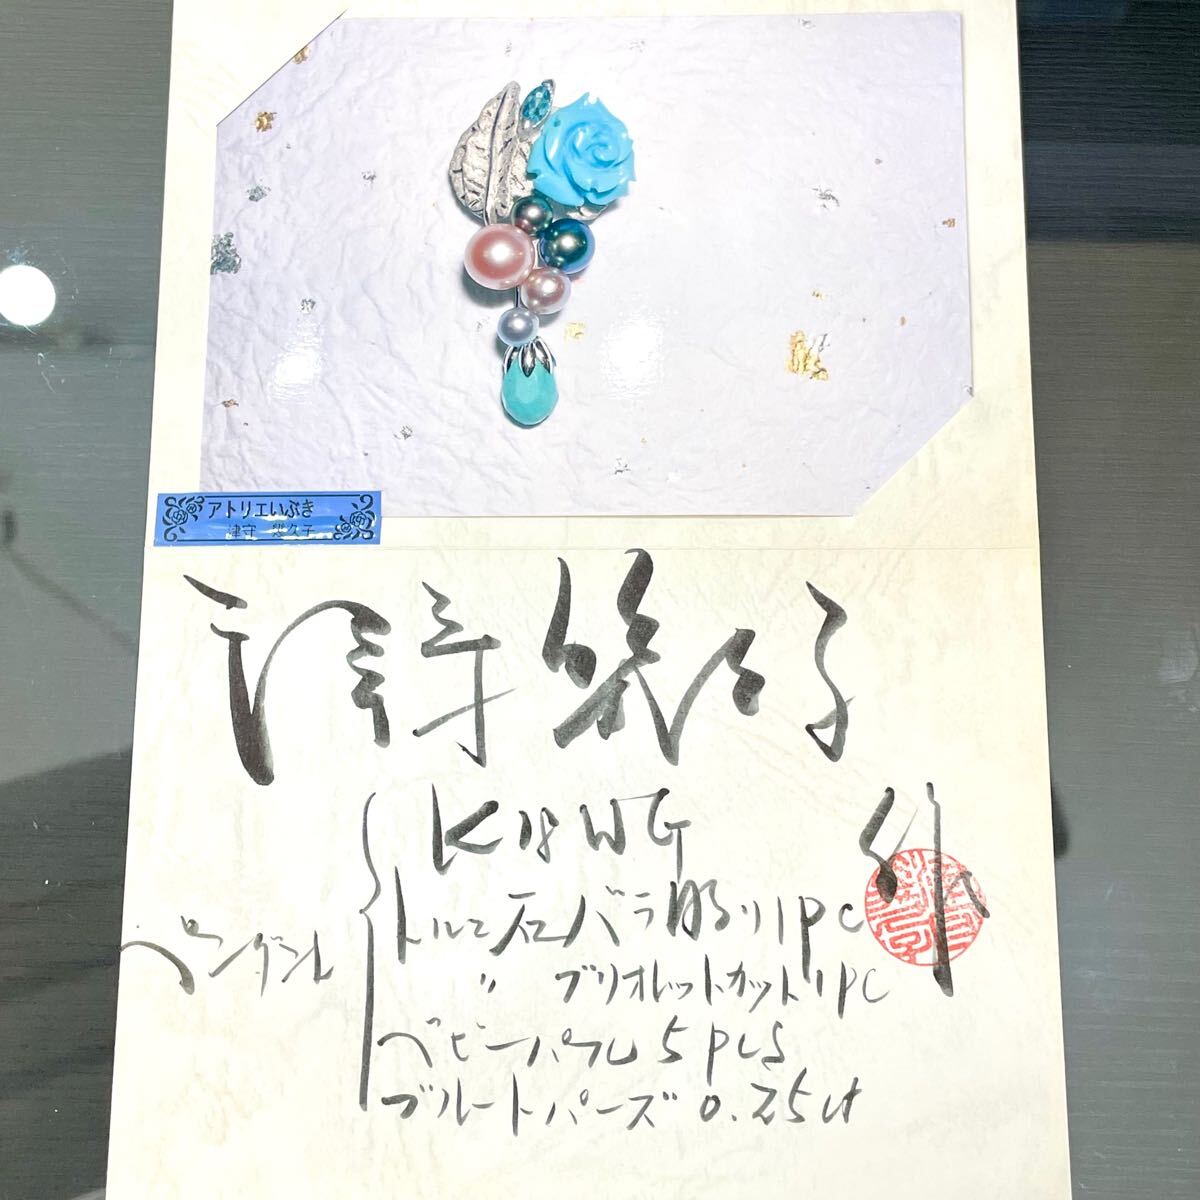 アトリエいぶき
津守 悠久子
津守 久子
K18WG 作
ペンダント
トルコ石バラ彫り1pc
〃 ブリオレットカット1pc
ベビーパール5pcs
ブルートパーズ0.25ct